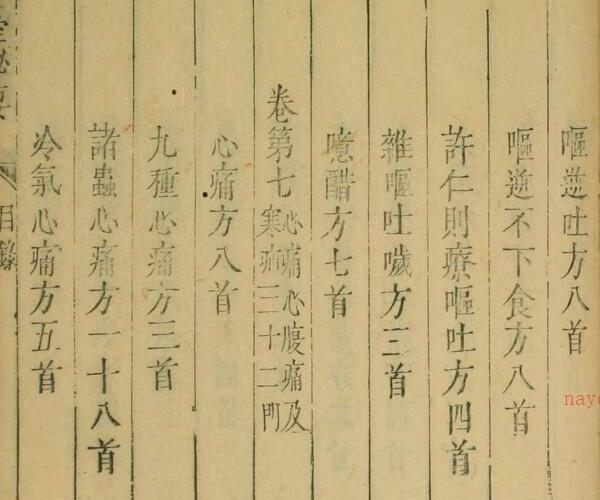 嘔逆吐方八首
嘔逆不下食方八首
許仁則療嘔吐方四首
雜嘔吐噦方三首
噫醋方七首
卷第七 心痛心腹痛及寒疝三十二門
心痛方八首
九種心痛方三首
諸蟲心痛方一十八首
冷氣心痛方五首
秘要 目錄